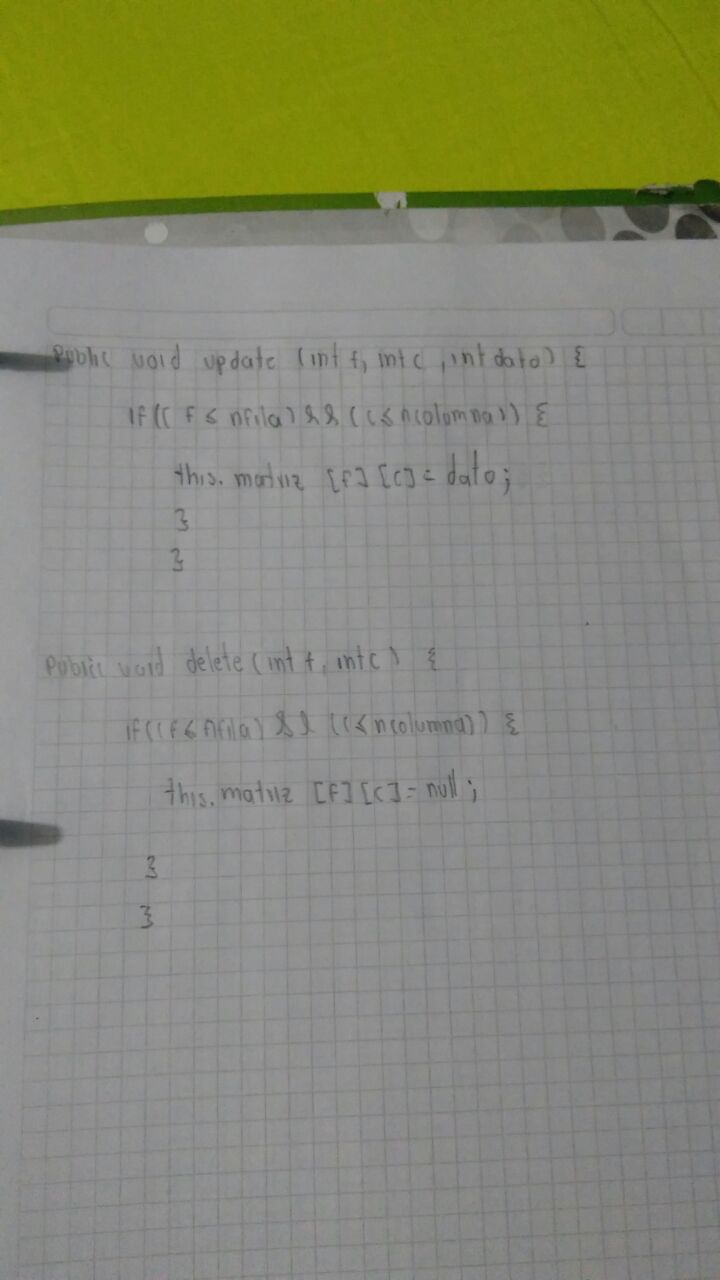 Public void update (int f, int c, int dato) {
if (( f ≤ nfila) && (c ≤ ncolumna)) {
this. matriz [f] [c] = dato;
}
}
Public void delete (int f, int c) {
if ((f ≤ nfila) && (c ≤ ncolumna)) {
this. matriz [f] [c] = null;
}
}